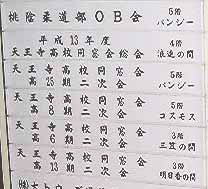 桃陰柔道部OB会 5階 パンジー
平成13年度 天王寺高校同窓会総会 4階 浪速の間
天王寺高校同窓会 高5期二次会 5階 パンジー
天王寺高校同窓会 高8期二次会 5階 コスモス
天王寺高校同窓会 高6期二次会 3階 三笠の間
天王寺高校同窓会 高13期二次会 3階 明日香の間